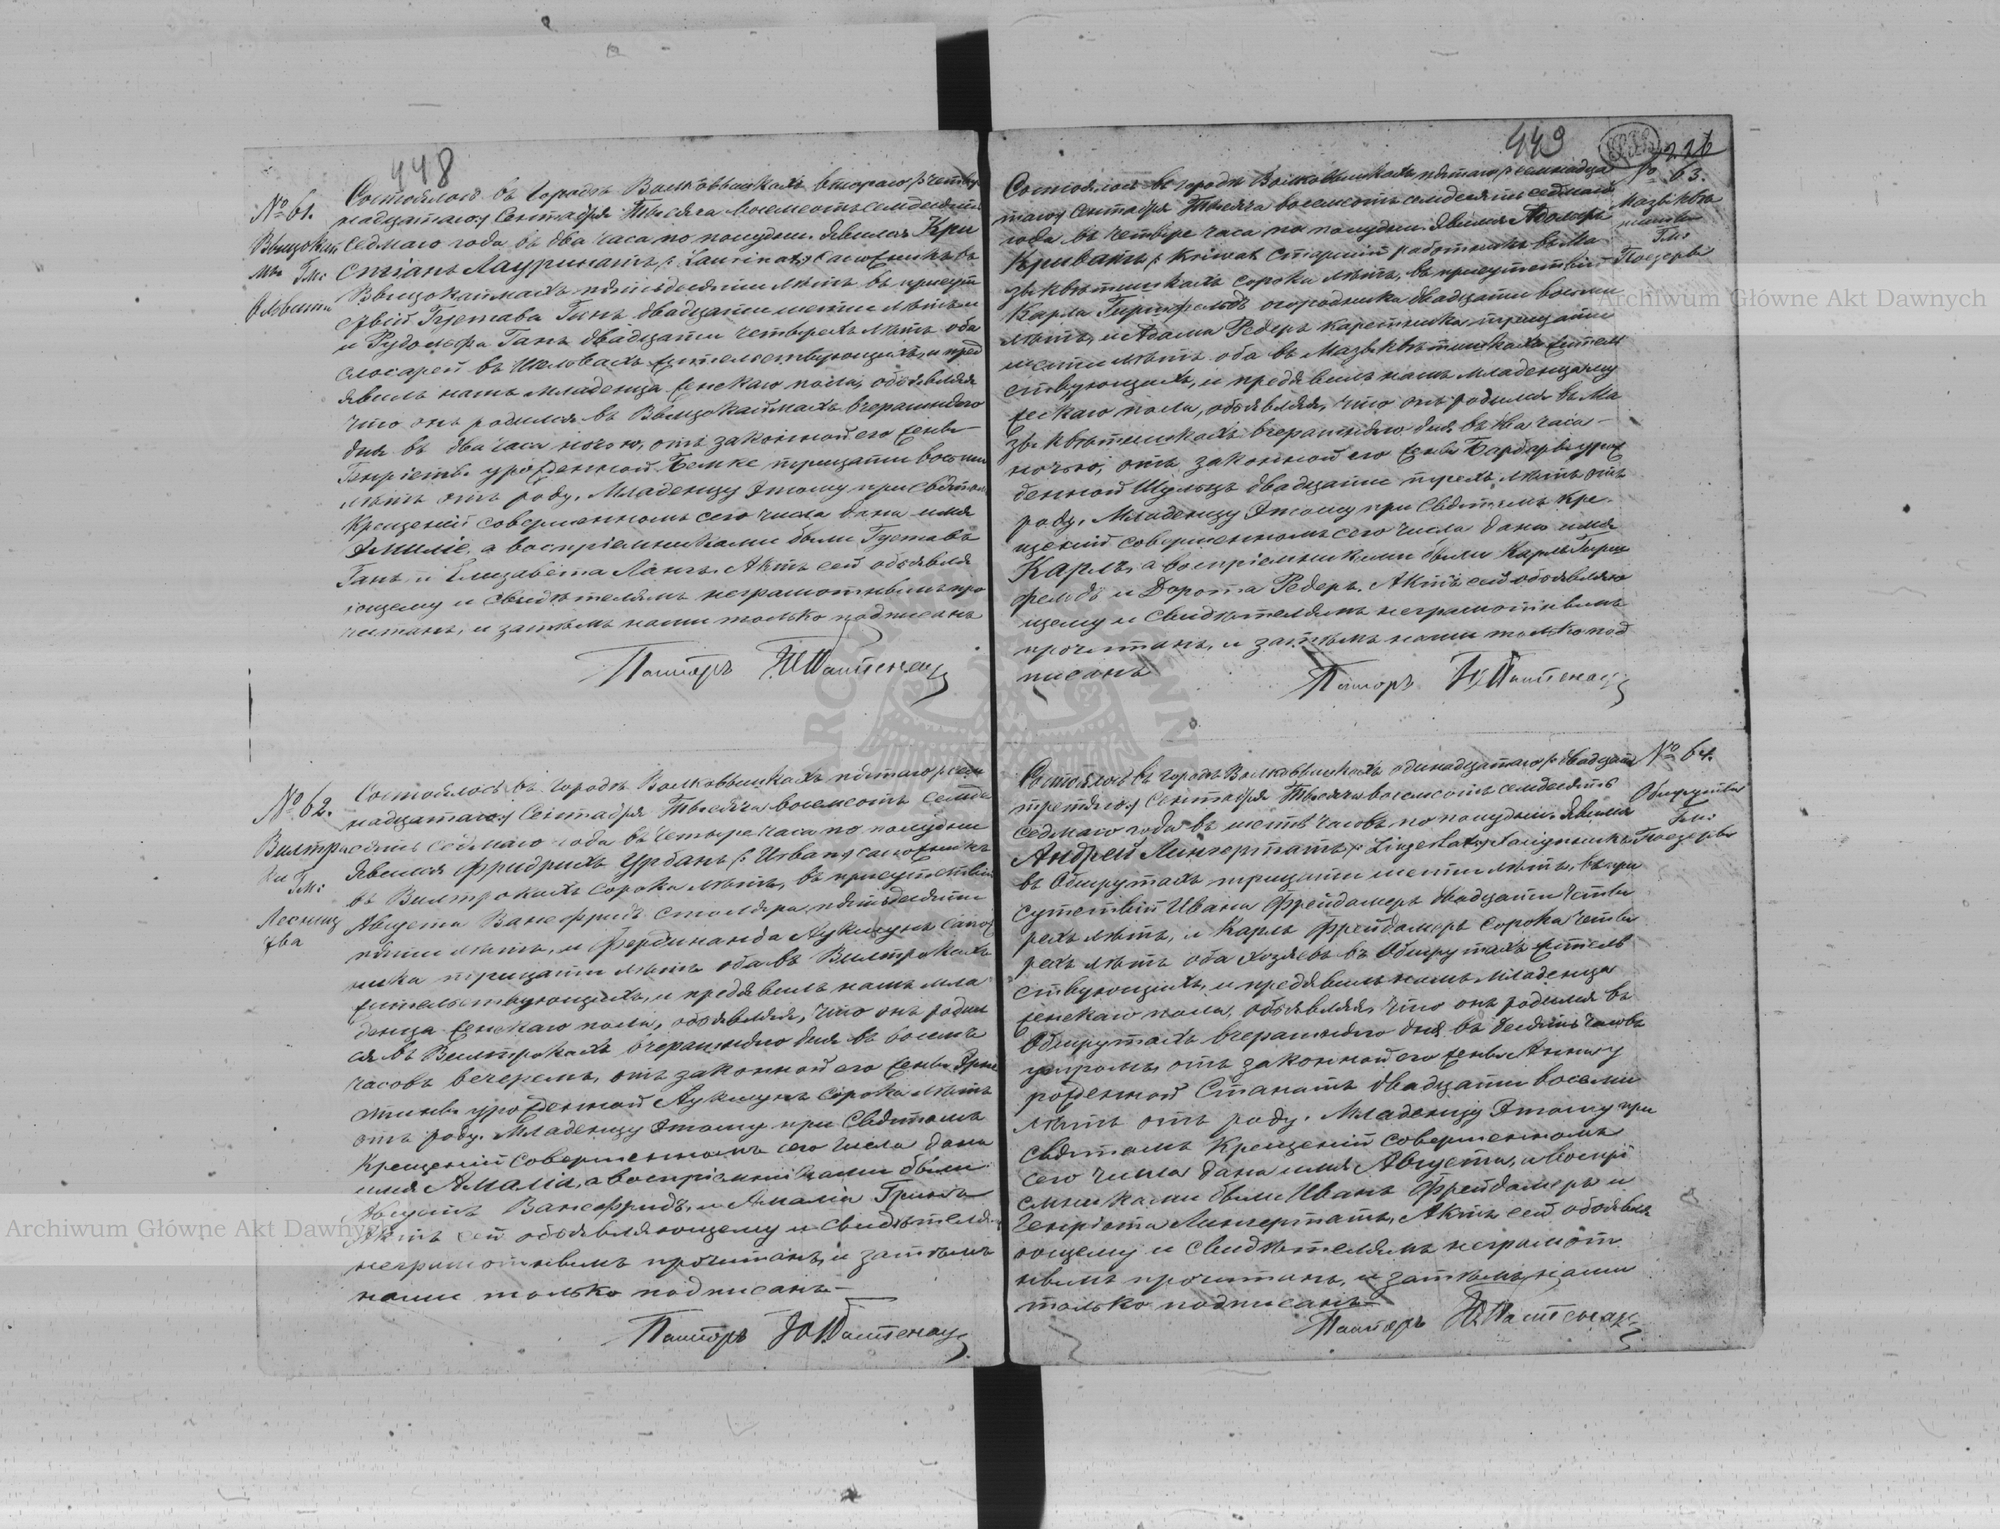 448
№ 61.
Выщокай
мы Гм:
Ольвита
Состоялось въ городѣ Волковышкахъ втораго /:четыр
надцатаго:/ Сентября Тысяча восемсотъ семдесятъ
седмаго года въ два часа по полудни. Явился Кри
стіанъ Лауринатъ /: Laurinat:/ въ
Выщокаймахъ пятьдесяти лѣтъ въ присут
ствіи Густава Ганъ двадцати шести лѣтъ и
и Рудольфа Ганъ двадцати четырехъ лѣтъ оба
слосарей въ жительствующихъ, и пред
явилъ намъ младенца женскаго пола, объявляя
что онъ родился въ Выщокаймахъ вчерашняго
дня въ два часа ночью, отъ законной его жены
Генріеты урожденной Бемке тридцати восьми
лѣтъ отъ роду. Младенцу этому при Святомъ
Крещеніи совершенномъ сего числа дана имя
Эмиліе, а воспріемниками были Густавъ
Ганъ и Елизавета Лангъ. Актъ сей объявля
ющему и свидѣтелямъ неграмотнымъ про
читанъ, и затѣмъ нами только подписанъ
Пасторъ
№ 62.
Вилтра
ки Гм:
Лесниц
тва
Состоялось въ городѣ Волковышкахъ пятаго /:сем
надцатаго:/ Сентября Тысяча восемсотъ семде
сятъ седмаго года въ четыре часа по полудни
Явился Фридрихъ Урбанъ /: Urban:/
въ Вилтрокахъ сорока лѣтъ, въ присутствіи
Августа Ванефридъ столяра пятьдесяти
пяти лѣтъ, и Фердинанда Аукшунъ сапож
ника тридцати лѣтъ оба въ Вилтрокахъ
жительствующихъ, и предявилъ намъ мла
денца женскаго пола, объявляя, что онъ родил
ся въ Вилтрокахъ вчерашняго дня въ восемъ
часовъ вечеромъ, отъ законной его жены Эрне
стины урожденной Аукшунъ сорока лѣтъ
отъ роду. Младенцу этому при Святомъ
Крещеніи совершенномъ сего числа дана
имя Амалія, а воспріемниками были
Августъ Ванефридъ, и Амалія
Актъ сей объявляющему и свидѣтелямъ
неграмотнымъ прочитанъ, и затѣмъ
нами только подписанъ
Пасторъ
449
226
№ 63.
Мазъ Квѣ
тишки
Гм:
Поезеры
Состоялось въ городѣ Волковышкахъ пятаго /:семнадца
таго:/ Сентября Тысяча восемсотъ семдесятъ седмаго
года въ четыре часа по полудни. Явился Адольфъ
Криватъ /: Kriwat старшій работникъ въ Ма
зъ Квѣтишкахъ сорока лѣтъ, въ присутствіи
Карла Гиршфельдъ огородника двадцати восьми
лѣтъ, и Адама Редеръ каретника тридцати
шести лѣтъ оба въ Мазъ Квѣтишкахъ жител
ствующихъ, и предявилъ намъ младенца му
жескаго пола, объявляя, что онъ родился въ Ма
зъ Квѣтишкахъ вчерашняго дня въ два часа
ночью, отъ законной его жены Барбары урож
денной Шульцъ двадцати трехъ лѣтъ отъ
роду. Младенцу этому при Святомъ Кре
щеніи совершенномъ сего числа дано имя
Карлъ, а воспріемниками были Карлъ Гирш
фельдъ и Дорота Редеръ. Актъ сей объявляю
щему и свидѣтелямъ неграмотнымъ
прочитанъ, и затѣмъ нами только под
писанъ
Пасторъ
№ 64.
Обшрутеле
Гм:
Поезеры
Состоялось въ городѣ Волковышкахъ одинадцатаго /:двадцать
третяго:/ Сентября Тысяча восемсотъ семдесятъ
седмаго года въ шесть часовъ по полудни. Явился
Андрей Лингертатъ /: Lingertat:/
въ Обшрутахъ тридцати шести лѣтъ, въ при
сутствіи Ивана Фрейдамеръ двадцати четы
рехъ лѣтъ, и Карлъ Фрейдамеръ сорока четы
рехъ лѣтъ оба хозяевъ въ Обшрутахъ жительст
ствующихъ, и предявилъ намъ младенца
женскаго пола, объявляя, что онъ родился въ
Обшрутахъ вчерашняго дня въ десять часовъ
утромъ, отъ законной его жены Анны у
рожденной Станатъ двадцати восьми
лѣтъ отъ роду. Младенцу этому при
Святомъ Крещеніи совершенномъ
сего числа дана имя Августа, а воспрі
емниками были Иванъ Фрейдамеръ и
Генріета Лингертатъ. Актъ сей объявля
ющему и свидѣтелямъ неграмот
нымъ прочитанъ, и затѣмъ нами
только подписанъ
Пасторъ
Archiwum Główne Akt Dawnych
Archiwum Główne Akt Dawnych